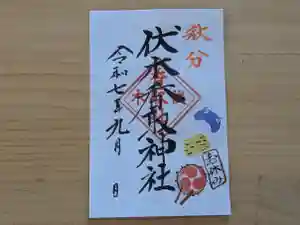 秋分
伏木香取神社
令和七年九月 日